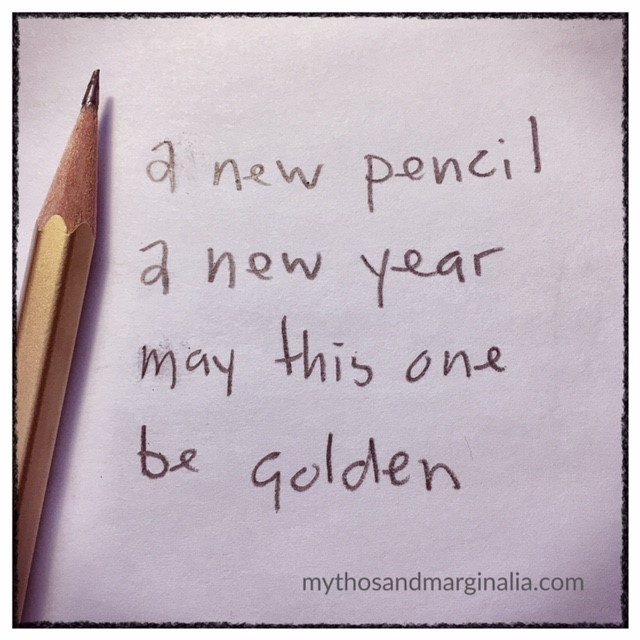 a new pencil
a new year
may this one
be golden
mythosandmarginalia.com